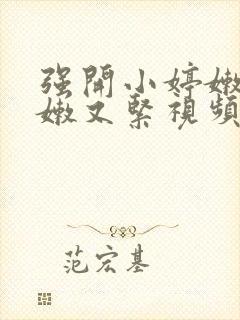 强開小婷嫩
嫩又緊視頻
范宏基